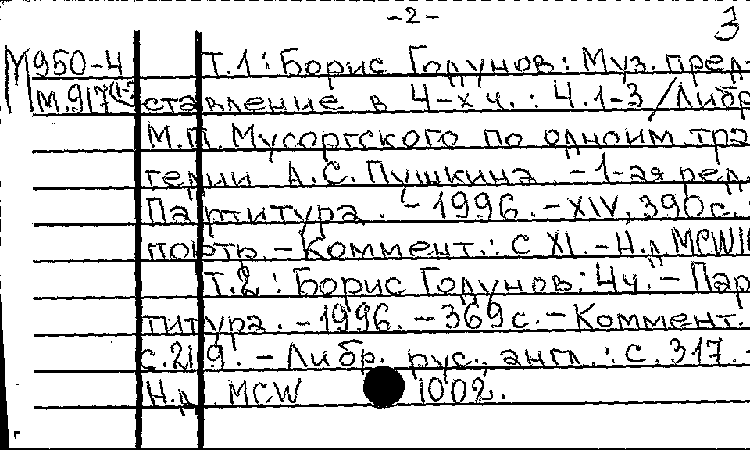 -2-
3
М950-4 Т.1: Борис Годунов: Муз. пред-
М.917 ставление в 4-х ч.: Ч.1-3 / Либр
М.П. Мусоргского по одноим. тра
гедии А.С. Пушкина. - 1-ая ред.
Партитура. - 1996. - XIV, 390 с.:
портр. - Коммент.: с XI. - Н.д. MCW
Т.2: Борис Годунов: 4ч. - Пар
титура. - 1996. - 369 с. - Коммент.
с.219. - Либр. рус., англ.: с. 317. -
Н.д. MCW 1002.